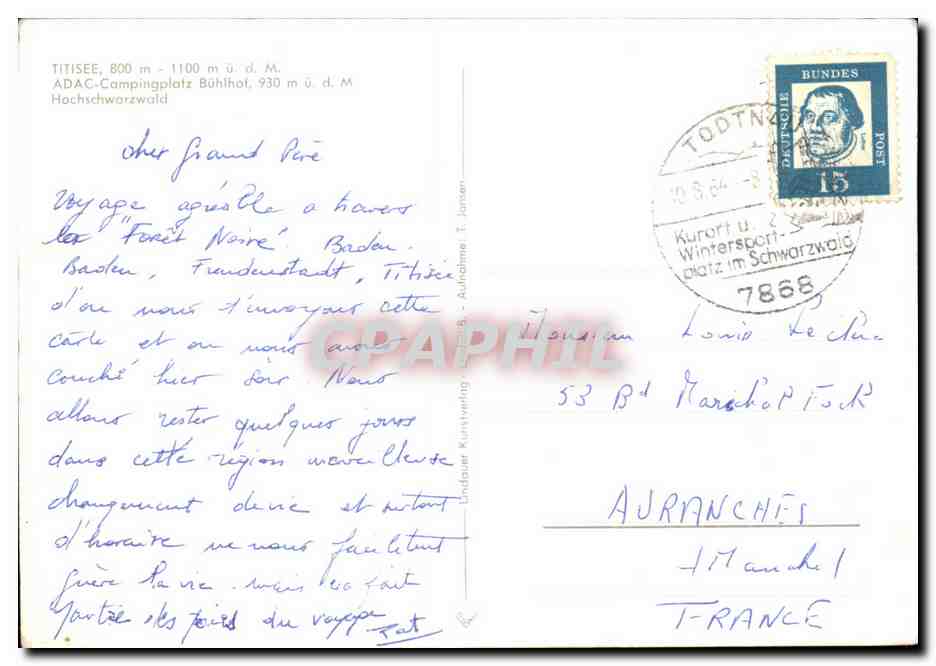 TITISEE, 800 m - 1100 m ü. d. M.
ADAC-Campingplatz Bühlhof, 930 m ü. d. M
Hochschwarzwald
cher Grand Père
Voyage agréable a travers
la "Forêt Noire". Baden.
Baden, Freudenstadt, Titisée
d'ou nous t'envoyons cette
carte et ou nous avons
couché hier soir. Nous
allons rester quelques jours
dans cette région merveilleuse
changement de vie et surtout
d'horaire ne nous facilitent
guère la vie. mais ça fait
partie des joies du voyage
Lindauer Kunstverlag - - Aufnahme: T. Jansen
DEUTSCHE
BUNDES
POST
Luther
15
TODTN
.8.64 - 8
Kurort u.
Wintersport-
platz im Schwarzwald
7868
Monsieur Louis
53 Bd Marechal Foch
AVRANCHES
Manche
FRANCE
CPAPHIL